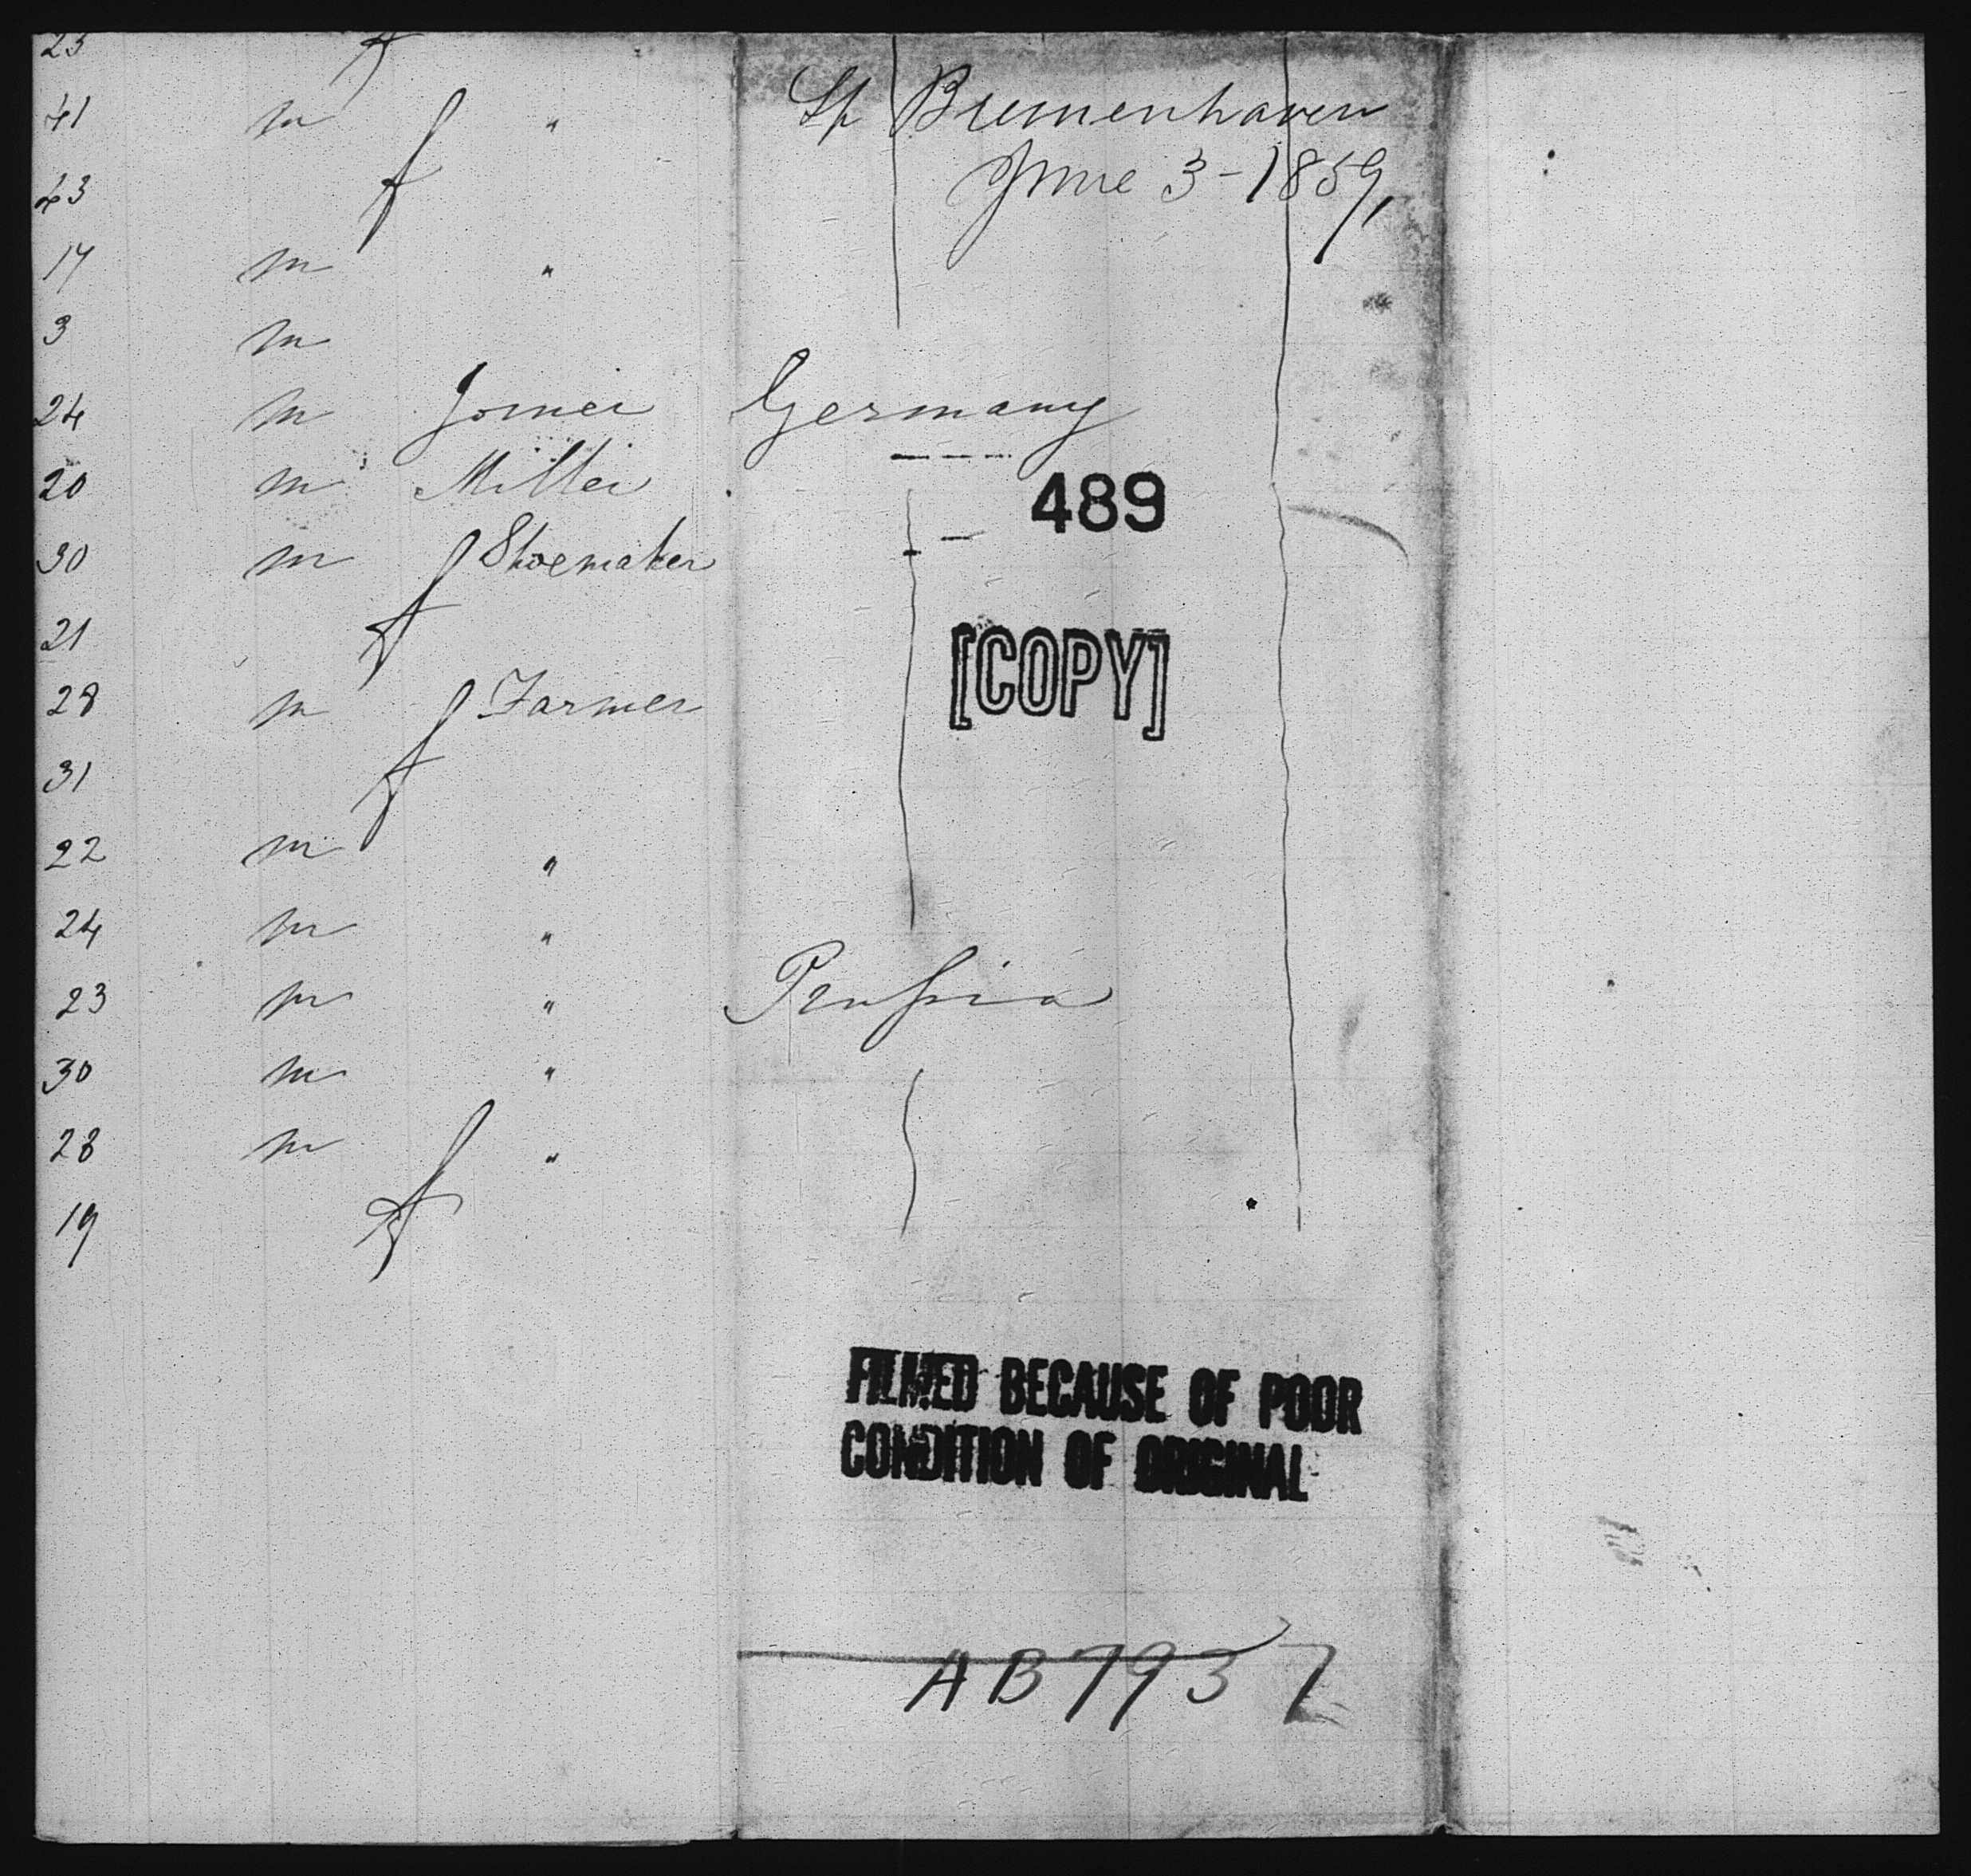 23 f
Sp Bremenhaven
41 m "
June 3-1859,
43 f
17 m "
3 m
24 m Joiner Germany
20 m Miller
489
30 m Shoemaker
21 f
[COPY]
28 m Farmer
31 f
22 m "
24 m "
23 m " Prussia
30 m "
28 m "
19 f
FILMED BECAUSE OF POOR
CONDITION OF ORIGINAL
AB7937